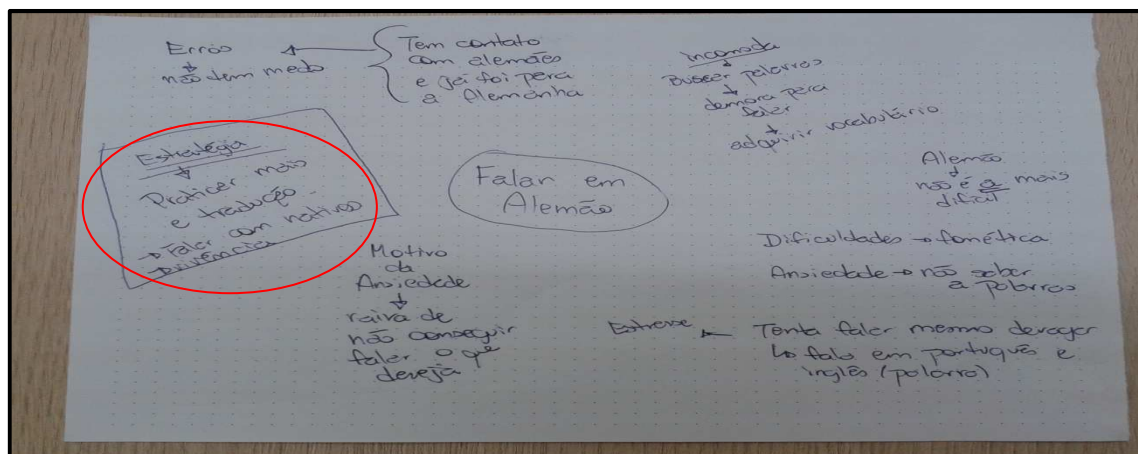 Erros
não tem medo
Tem contato
com alemães
e já foi para
a Alemanha
incomoda
Buscar palavras
demora para
falar
adquirir vocabulário
Estratégia
Praticar mais
e tradução
→ Falar com nativos
→ Divência
Falar em
Alemão
Alemão
não é a mais
difícil
Dificuldades → fonética
Ansiedade → não saber
a palavras
Motivo
da
Ansiedade
raiva de
não conseguir
falar o que
deseja
Estresse
Tenta falar mesmo devagar
↳ fala em português e
inglês (palavra)